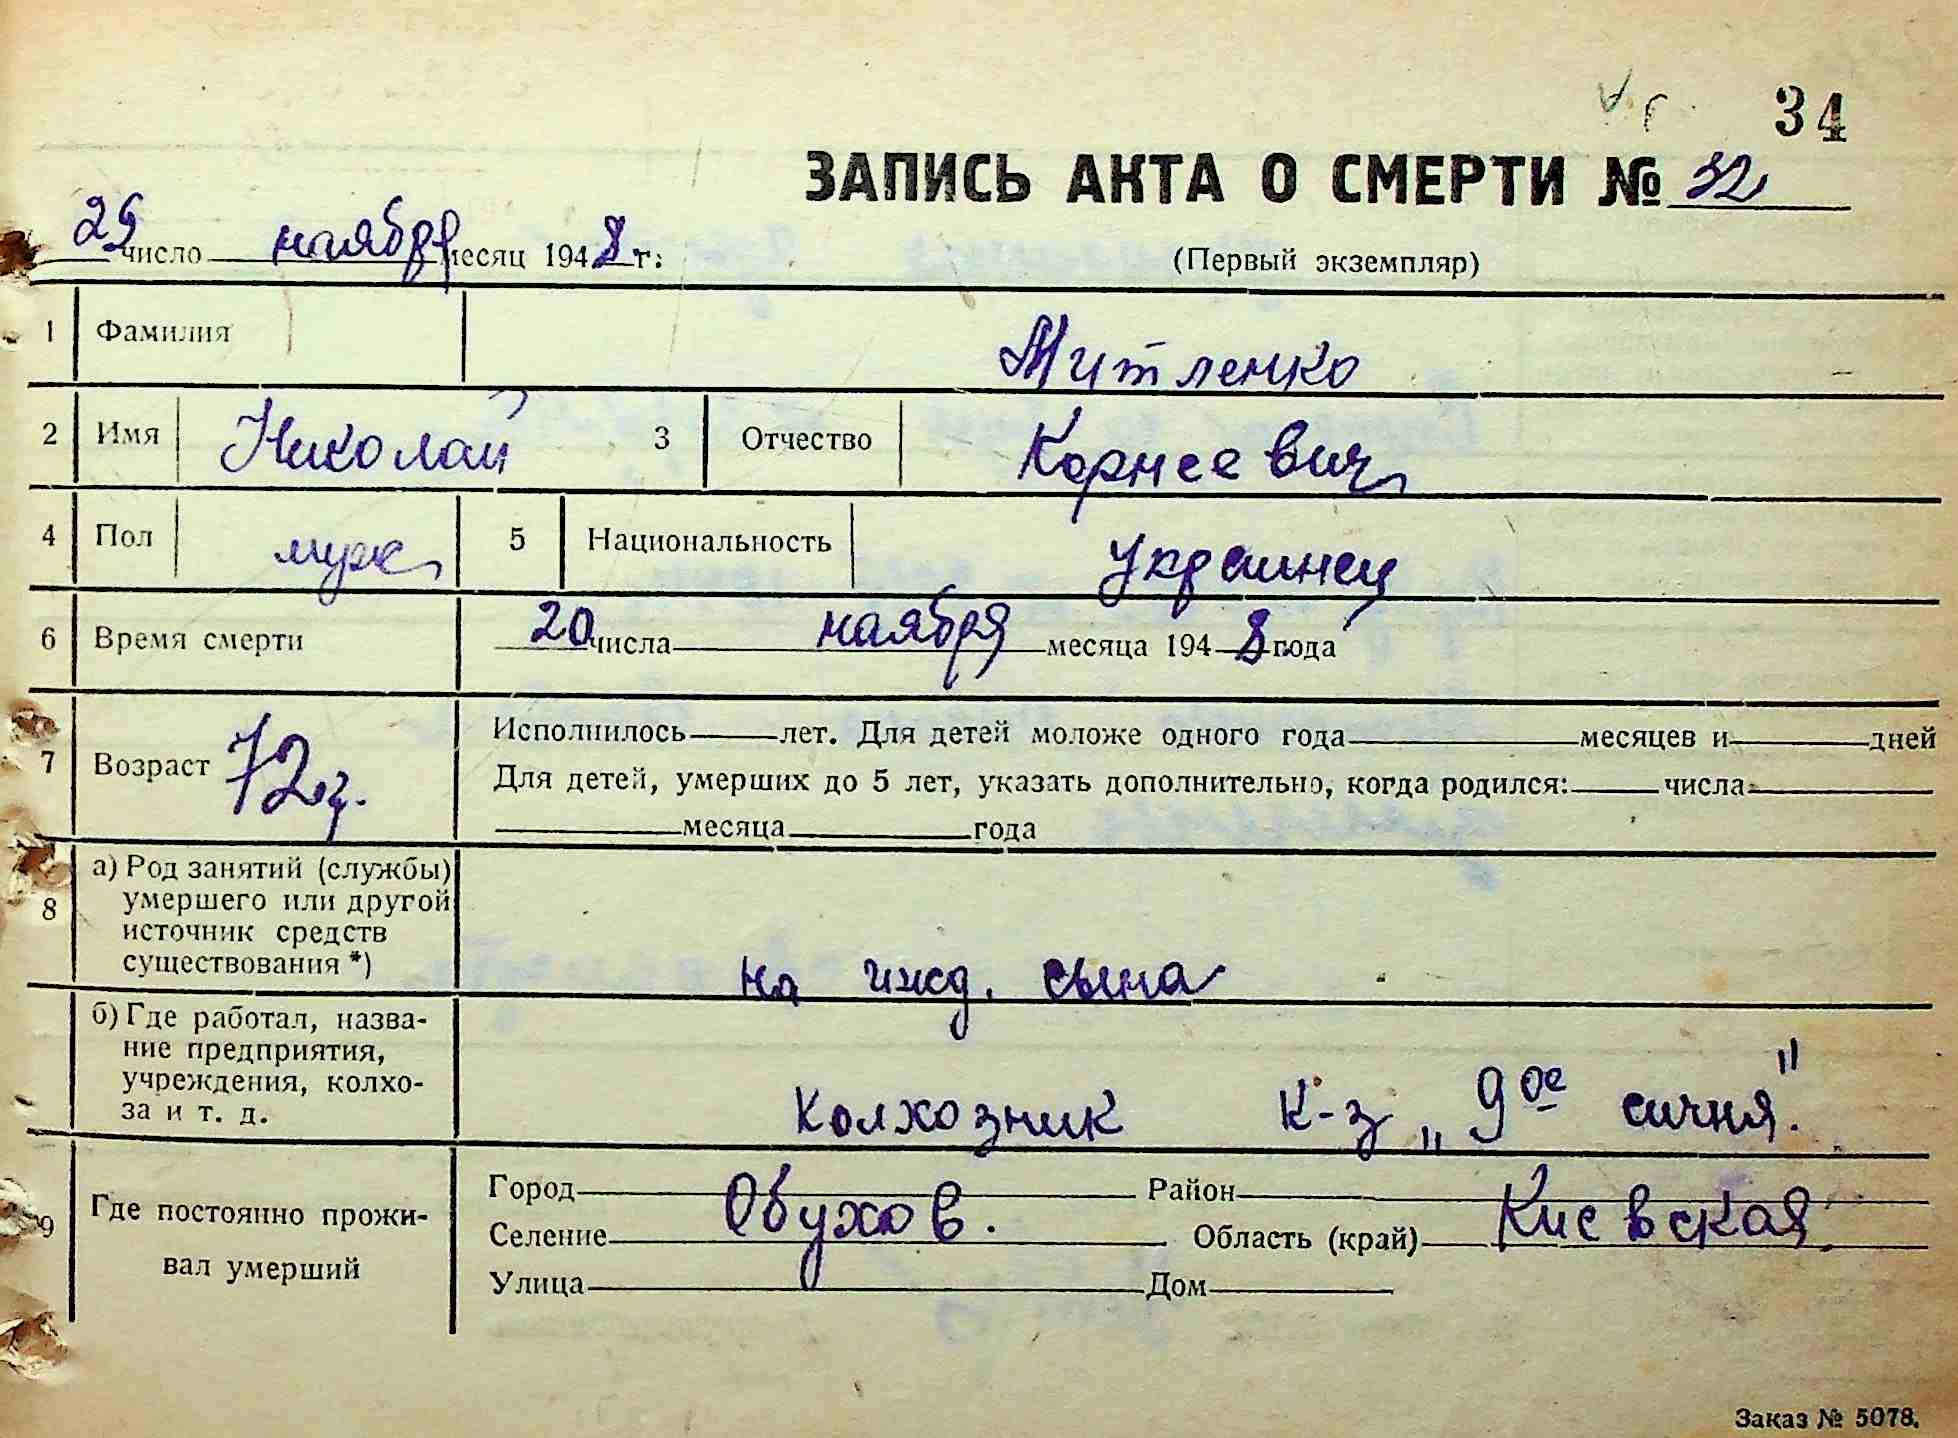 34
ЗАПИСЬ АКТА О СМЕРТИ № 32
25 число ноября месяц 1948 г.
(Первый экземпляр)
1 Фамилия Митленко
2 Имя Николай 3 Отчество Корнеевич
4 Пол муж 5 Национальность украинец
6 Время смерти 20 числа ноября месяца 1948 года
7 Возраст 72 г. Исполнилось лет. Для детей моложе одного года месяцев и дней
Для детей, умерших до 5 лет, указать дополнительно, когда родился: числа
месяца года
8 а) Род занятий (службы)
умершего или другой
источник средств
существования *) на ижд. сына
б) Где работал, назва-
ние предприятия,
учреждения, колхо-
за и т. д. Колхозник к-з „9ое сичня"
9 Где постоянно прожи-
вал умерший
Город Обухов. Район
Селение Область (край) Киевская
Улица Дом
Заказ № 5078.